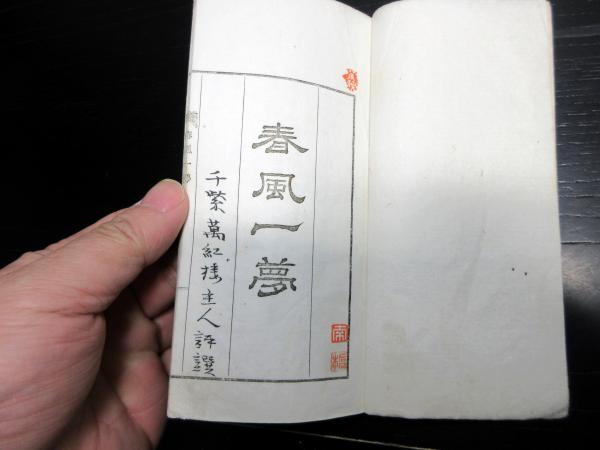 春風一夢
千紫萬紅樓主人評譔